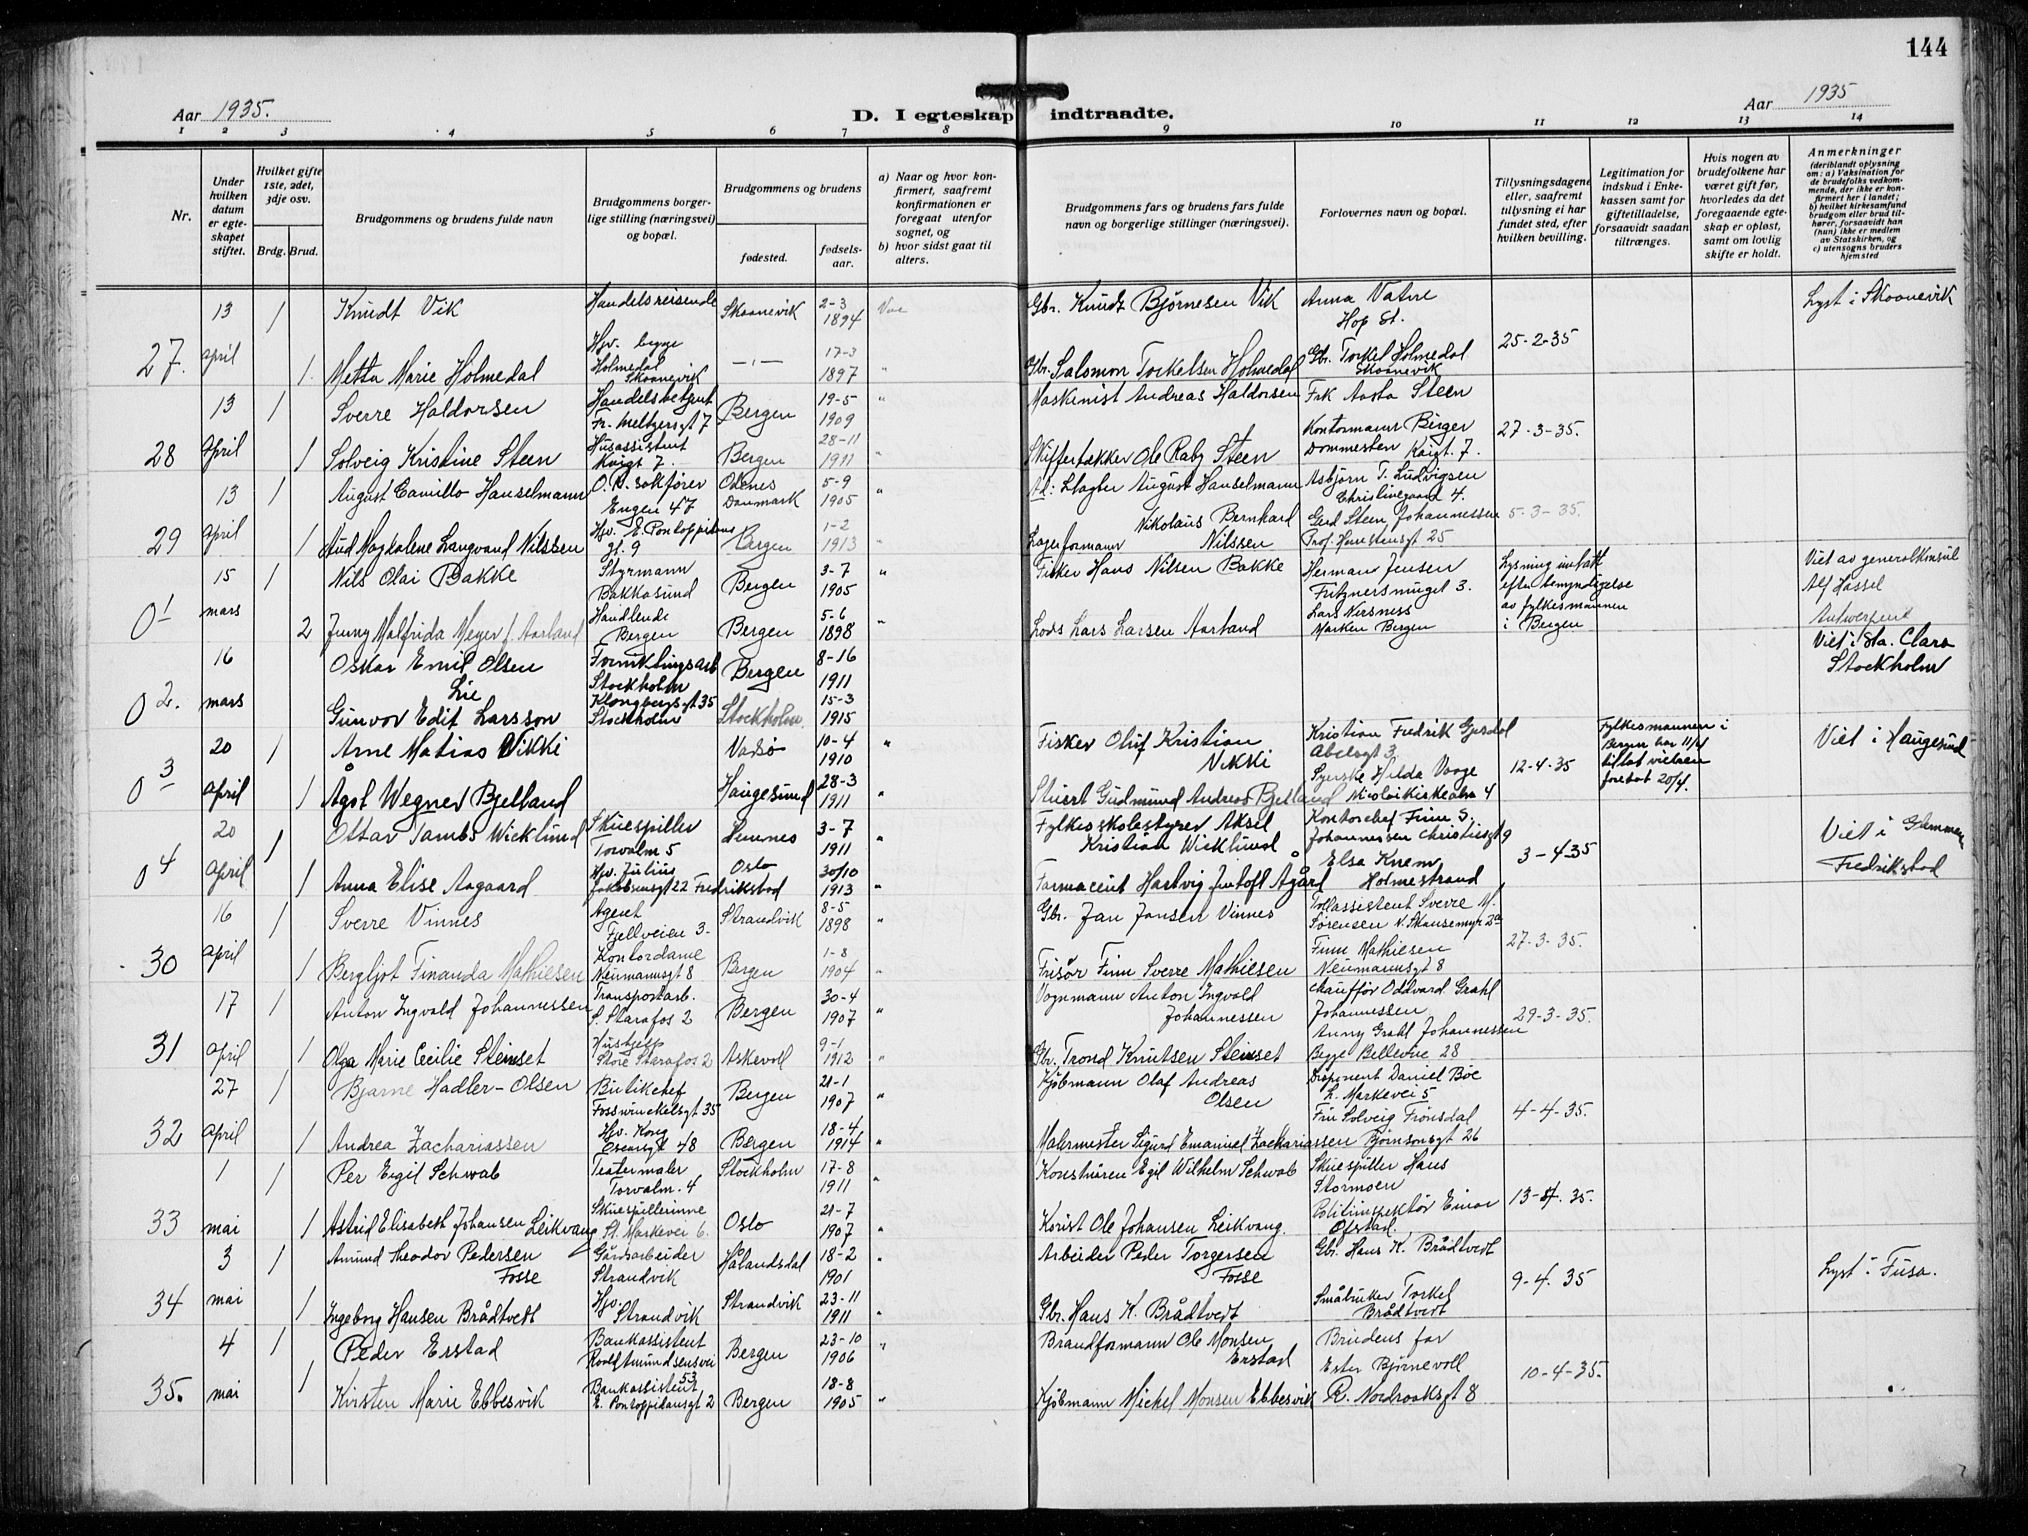 144
Aar 1935.
D. I egteskap indtraadte.
Aar 1935
1 2 3 4 5 6 7 8 9 10 11 12 13 14
Nr.
Under hvilken datum er egteskapet stiftet.
Hvilket gifte 1ste, 2det, 3dje osv.
Brdg. Brud.
Brudgommens og brudens fulde navn
Brudgommens borgerlige stilling (næringsvei) og bopæl.
Brudgommens og brudens
fødested.
fødselsaar.
a) Naar og hvor konfirmert, saafremt konfirmationen er foregaat utenfor sognet, og
b) hvor sidst gaat til alters.
Brudgommens fars og brudens fars fulde navn og borgerlige stillinger (næringsvei).
Forlovernes navn og bopæl.
Tillysningsdagene eller, saafremt tillysning ei har fundet sted, efter hvilken bevilling.
Legitimation for indskud i Enkekassen samt for giftetilladelse, forsaavidt saadan tiltrænges.
Hvis nogen av brudefolkene har været gift før, hvorledes da det foregaaende egteskap er opløst, samt om lovlig skifte er holdt.
Anmerkninger
(deriblandt oplysning om: a) Vaksination for de brudefolks vedkommende, der ikke er konfirmert her i landet; b) hvilket kirkesamfund brudgom eller brud tilhører, forsaavidt han (hun) ikke er medlem av Statskirken, og c) utensogns bruders hjemsted
13 1 Knudt Vik Handelsreisende Skaanevik 2-3 1894 Gbr. Knudt Bjørnesen Vik Anna Vatne Hop St. Lyst i Skaanevik
27. april 1. Metta Marie Holmedal Hjv. begge Holmedal Skaanevik —"— 17-3 1897 " Gbr. Salomon Torkelsen Holmedal Gbr. Torkel Holmedal Skaanevik 25-2-35
13 1 Sverre Haldorsen Handelsbetjent Fr. Meltzersgt 7 Bergen 19-5 1909 " Maskinist Andreas Haldorsen Frk Aasta Steen
28 April 1 Solveig Kristine Steen Husassistent Kaigt 7. Bergen 28-11 1911 " Skiffertækker Ole Raby Steen Kontormann Birger Dommersten Kaigt. 7. 27-3-35.
13 1 August Camillo Hanselmann O.R. sakfører Engen 47 Odenes Danmark 5-9 1905 " August Hanselmann Asbjørn T. Ludvigsen Christinegaard 4.
29 April 1 Aud Magdalene Langvand Nilssen Hjv. E. Pontoppidans gt. 9 Bergen 1-2 1913 " Lagerformann Nikolaus Bernhard Nilssen Gerd Steen Johannessen Prof. Hanstensgt 25 5-3-35.
15 1 Nils Olai Bakke Styrmann Bakkasund Bergen 3-7 1905 " Fisker Hans Nilsen Bakke Herman Jensen Fritznersmuget 3. Lysning innfatt efter bemyndigelse av fylkesmannen i Bergen Viet av generalkonsul Alf Hassel Antwerpen
01 mars 2 Jenny Malfrida Meyer f. Aarland Handlende Bergen Bergen 5-6 1898 " Lods Lars Larsen Aarland Lars Nersness Marken Bergen
16 Oskar Emil Olsen Lie Stockholm Bergen 8-16 1911 Viet i Sta. Clara Stockholm
02. mars Gunvor Edit Larsson Klongbergsgt 35 Stockholm Stockholm 15-3 1915
20 1 Arne Matias Nikki Vadsø 10-4 1910 " Fisker Oluf Kristian Nikki Kristian Fredrik Gjerdal Abelsgt 3 Fylkesmannen i Bergen har 11/4 tillat vielsen foretat 20/4. Viet i Haugesund
03 April 1 Ågot Wegner Bjelland Haugesund 28-3 1911 " Stuert Gudmund Andreas Bjelland Syerske Hilda Vaage Nicolaikirkealm 4 12-4-35
20 1 Ottar Tambs Wicklund Skuespiller Torvalm 5 Hemnes 3-7 1911 " Fylkesskolestyrer Aksel Kristian Wicklund Kontorchef Finn S. Johannessen Christiesgt 9 Viet i Glemmen Fredrikstad
04 April 1 Anna Elise Aagaard Hjv. Julius Jakobsensgt 22 Fredrikstad Oslo 30/10 1913 " Farmaceut Hartvig Jentoft Ågård Elsa Knem Holmestrand 3-4-35
16 1 Sverre Vinnes Agent Fjellveien 3 Strandvik 8-5 1898 " Gbr. Jan Jansen Vinnes Tollassistent Sverre M. Sørensen N. Skansemyr 2a
30 April 1 Bergljot Finanda Mathiesen Kontordame Neumannsgt 8 Bergen 1-8 1904 " Frisør Finn Sverre Mathiesen Finn Mathiesen Neumannsgt 8 27-3-35.
17 1 Anton Ingvald Johannessen Transportarb. S. Starafos 2 Bergen 30-4 1907 " Vognmann Anton Ingvald Johannessen Chauffør Oddvard Grahl Johannessen
31 April 1 Olga Marie Cecilie Steinset Hushjelp Store Starafos 2 Askevoll 9-1 1912 " Gbr. Trond Knutsen Steinset Anny Grahl Johannessen Begge Bellevue 28 29-3-35.
27 1 Bjarne Hadler-Olsen Butikchef Fosswinckelsgt 35 Bergen 21-1 1907 " Kjøbmann Olaf Andreas Olsen Disponent Daniel Bøe L. Markevei 5
32 April 1 Andrea Zachariassen Hjv. Kong Oscarsgt 48 Bergen 18-4 1914 " Malermester Sigurd Emanuel Zachariassen Fru Solveig Frønsdal Bjørnsonsgt 26 4-4-35.
1 1 Per Eigil Schwab Teatermaler Torvalm. 4 Stockholm 17-8 1911 " Egil Wilhelm Schwab Skuespiller Hans Stormoen
33 mai 1 Astrid Elisabeth Johansen Leikvang Skuespillerinne St. Markevei 6. Oslo 21-7 1907 " Korist Ole Johansen Leikvang. Politiinspektør Einar Ofstad. 13-4-35.
3 1 Amund Theodor Pedersen Fosse Gårdsarbeider Strandvik Hålandsdal 18-2 1901 " Arbeider Peder Torgersen Fosse Gbr. Hans K. Brådtvedt Lyst i Fusa.
34 mai 1 Ingeborg Hansen Brådtvedt Hjv. Strandvik Strandvik 23-11 1911 " Gbr. Hans K. Brådtvedt Småbruker Torkel Brådtvedt 9-4.35
4 1 Peder Erstad Bankassistent Roald Amundsensvei 53 Bergen 23-10 1906 " Brandformann Ole Monsen Erstad Brudens far
35. mai 1 Kirsten Marie Ebbesvik Bankassistent E. Pontoppidansgt 2 Bergen 18-8 1905 " Kjøbmann Mickel Monsen Ebbesvik Ester Bjørnevoll R. Nordraaksgt 8 10-4-35.